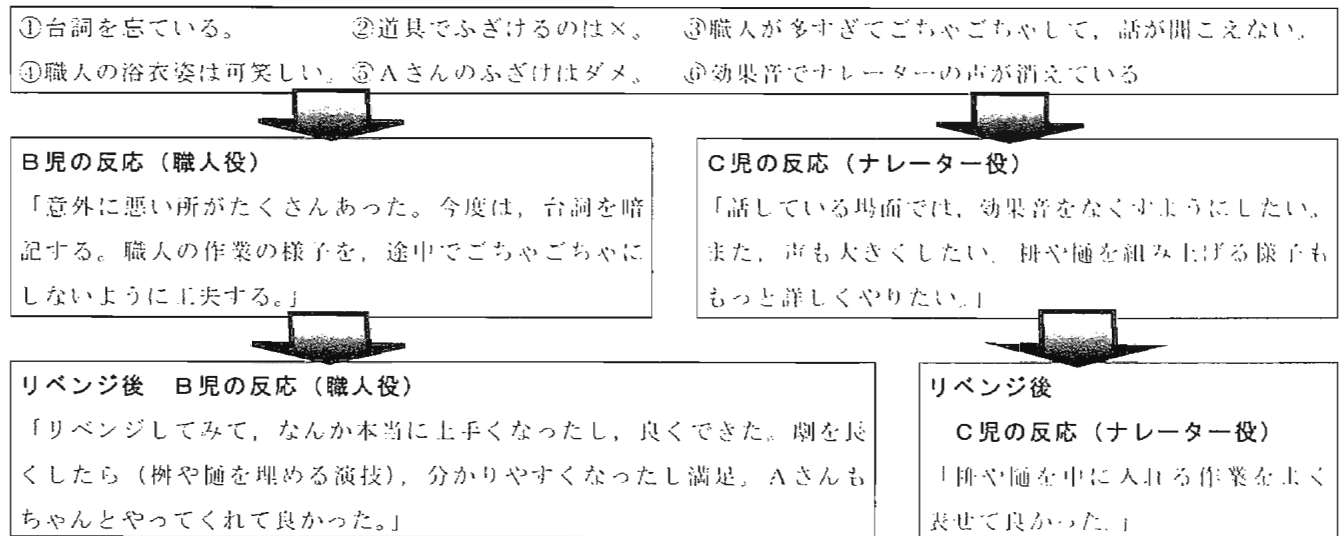 ①台詞を忘ている。 ②道具でふざけるのは×。 ③職人が多すぎてごちゃごちゃして，話が聞こえない。
④職人の浴衣姿は可笑しい。 ⑤Ａさんのふざけはダメ。 ⑥効果音でナレーターの声が消えている
Ｂ児の反応（職人役）
「意外に悪い所がたくさんあった。今度は，台詞を暗
記する。職人の作業の様子を，途中でごちゃごちゃに
しないように工夫する。」
Ｃ児の反応（ナレーター役）
「話している場面では，効果音をなくすようにしたい。
また，声も大きくしたい。枡や樋を組み上げる様子も
もっと詳しくやりたい。」
リベンジ後 Ｂ児の反応（職人役）
「リベンジしてみて，なんか本当に上手くなったし，良くできた。劇を長
くしたら（桝や樋を埋める演技），分かりやすくなったし満足，Ａさんも
ちゃんとやってくれて良かった。」
リベンジ後
Ｃ児の反応（ナレーター役）
「枡や樋を中に入れる作業をよく
表せて良かった。」